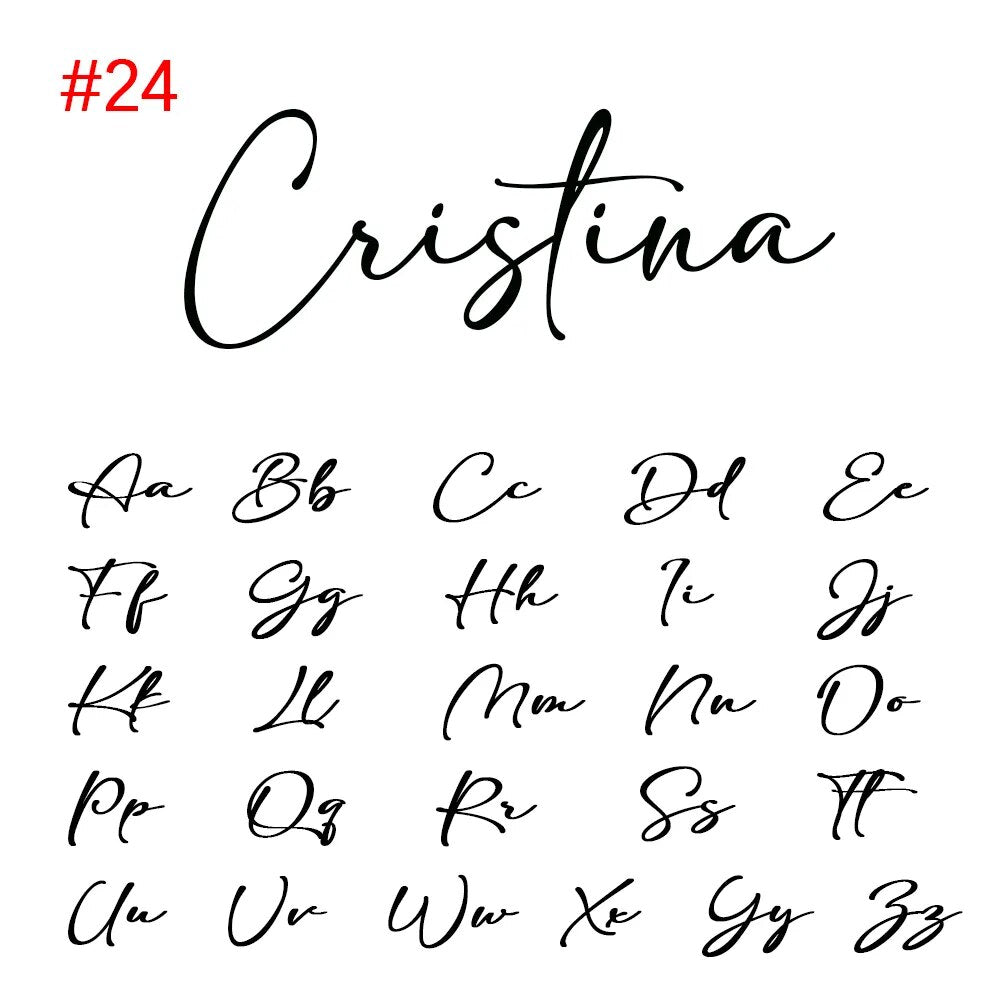 #24
Cristina
Aa Bb Cc Dd Ee
Ff Gg Hh Ii Jj
Kk Ll Mm Nn Oo
Pp Qq Rr Ss Tt
Uu Vv Ww Xx Yy Zz